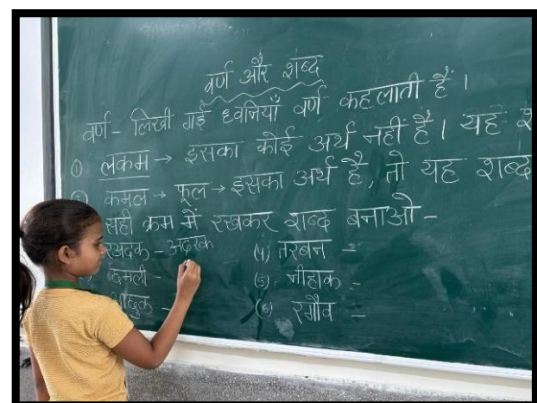 वर्ण और शब्द
वर्ण - लिखी गई ध्वनियाँ वर्ण कहलाती हैं।
① लकम → इसका कोई अर्थ नहीं है। यह
कमल → फूल → इसका अर्थ है, तो यह शब्द
सही क्रम में रखकर शब्द बनाओ -
रअदक - अदरक (४) तरबन =
(५) नीहाक -
(६) रगौव =